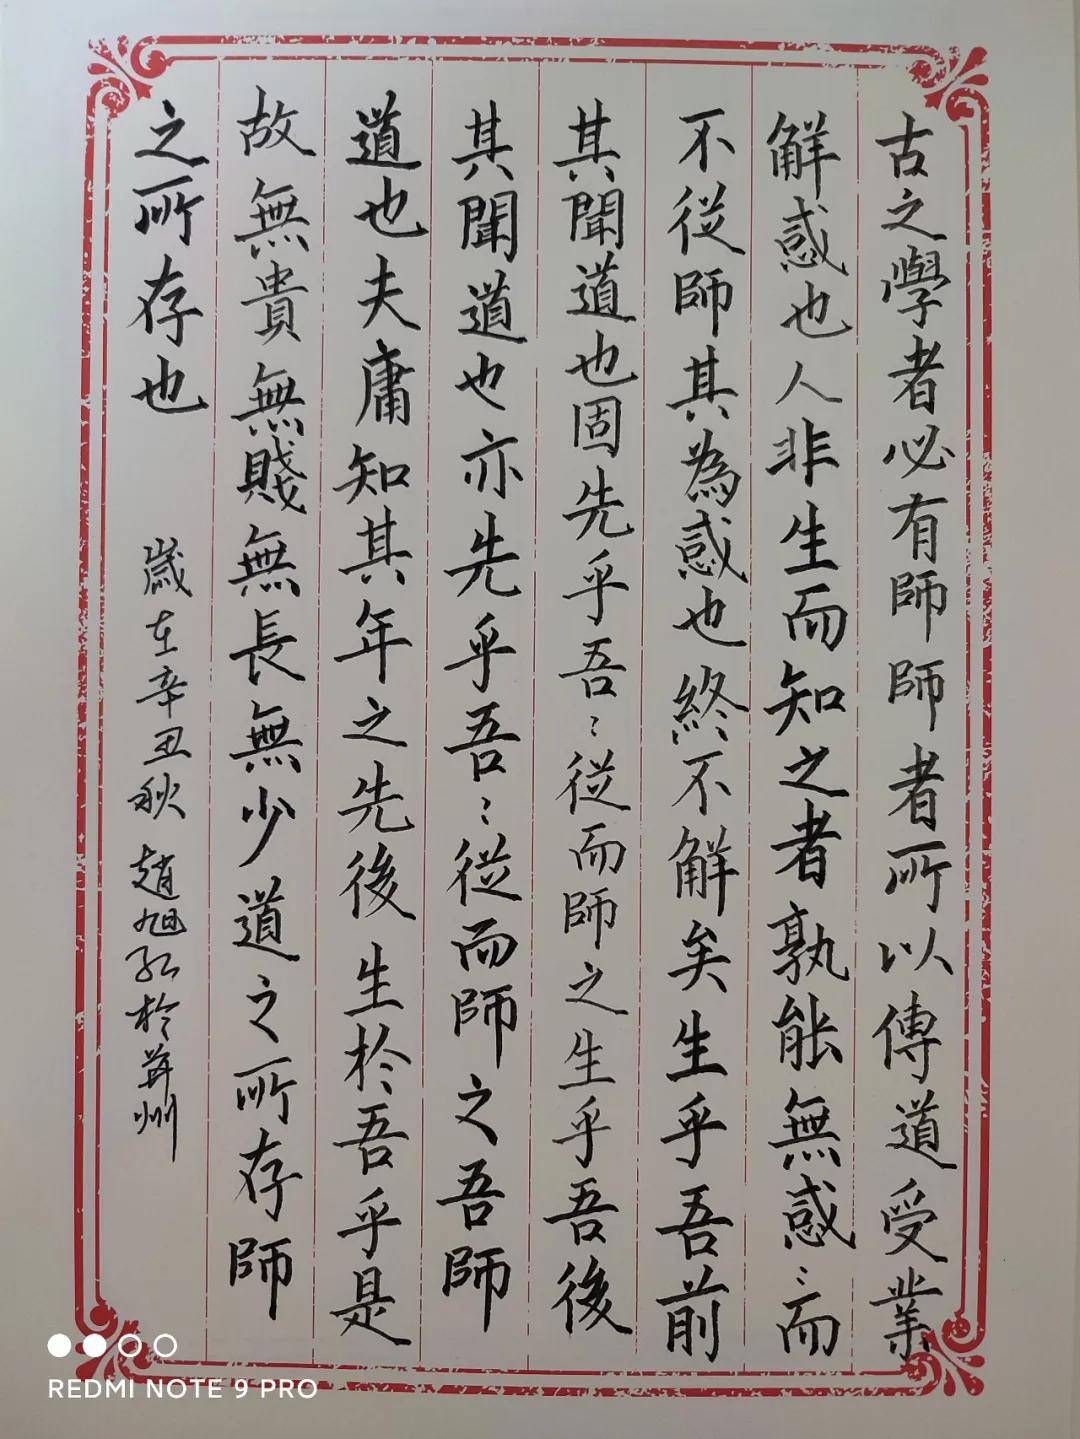 古之學者必有師師者所以傳道受業
解惑也人非生而知之者孰能無惑〻而
不從師其為惑也終不解矣生乎吾前
其聞道也固先乎吾吾〻從而師之生乎吾後
其聞道也亦先乎吾〻從而師之吾師
道也夫庸知其年之先後生於吾乎是
故無貴無賤無長無少道之所存師
之所存也
歲在辛丑秋 趙旭於并州
REDMI NOTE 9 PRO